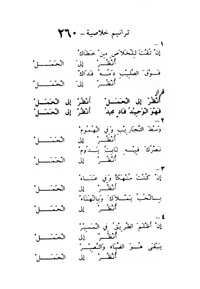 ترانيم خلاصية – ٢٦٠
– ١
إن تُقْتَ لِلْخَلَاصِ مِن خَطَاكْ
أُنْظُرْ إلى الحَمَــل
فَـوْقَ الصَّلِيبِ دَمُــهُ فَدَاكْ
أُنْظُرْ إلى الحَمَــل
قرار
أُنْظُرْ إلى الحَمَــلْ أُنْظُرْ إلى الحَمَــلْ
فَهْوَ الوَحِيدُ فَادٍ مَجِيدْ أُنْظُرْ إلى الحَمَــلْ
– ٢
وَسْطَ التَّجَارِيبِ وَفي الهُمُومْ
أُنْظُرْ إلى الحَمَــل
نَصْرُكَ فِيهِ ثَابِتٌ يَدُومْ
أُنْظُرْ إلى الحَمَــل
– ٣
إن كُنْتَ مُنْهَكًا وَفي عَنَــاءْ
أُنْظُرْ إلى الحَمَــل
بِالحُبِّ يَمْلَاكَ وَبِالهَنَاءْ
أُنْظُرْ إلى الحَمَــل
– ٤
إن أَظْلَمَ الطَّرِيقُ في المَسِيرْ
أُنْظُرْ إلى الحَمَــل
يَبْقَى هُوَ الضِّيَاءَ وَالنَّصِيرْ
أُنْظُرْ إلى الحَمَــل